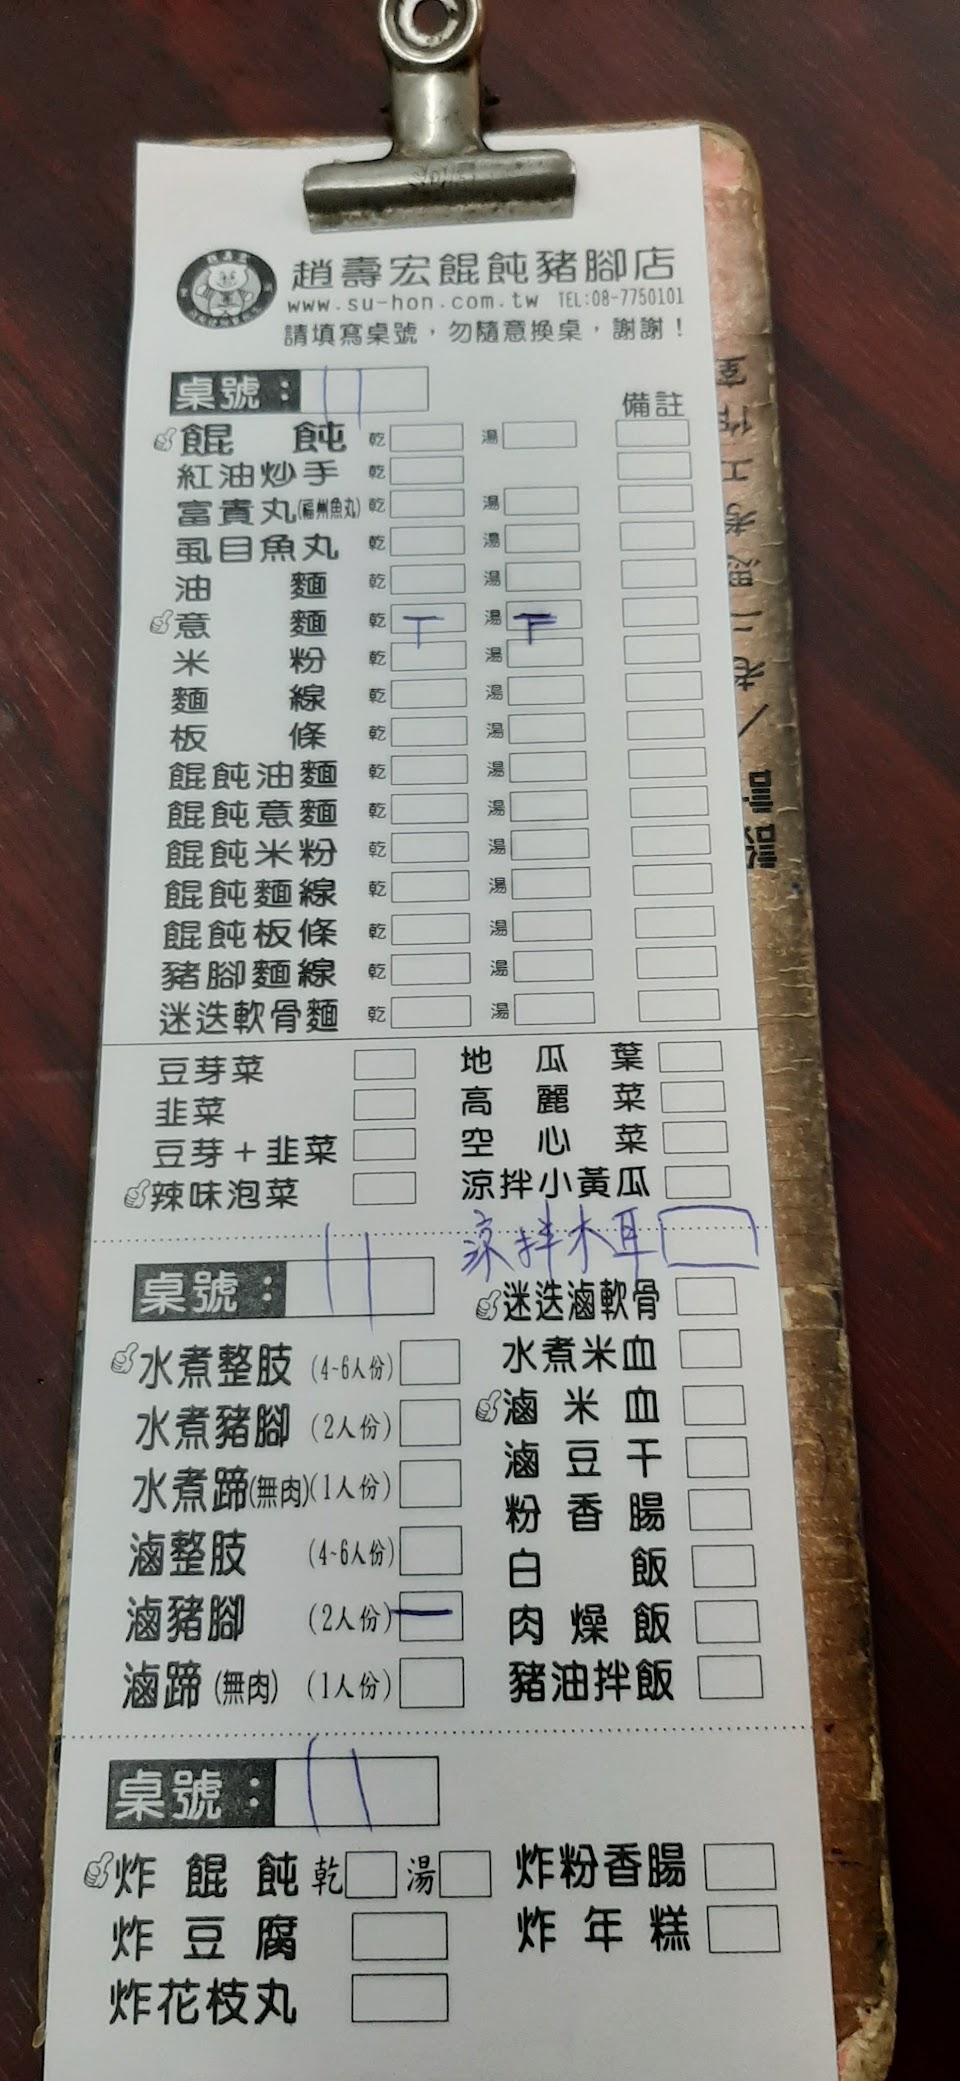 趙壽宏餛飩豬腳店
www.su-hon.com.tw TEL:08-7750101
請填寫桌號，勿隨意換桌，謝謝！
桌號：11
備註
餛飩 乾 湯
紅油炒手 乾
富貴丸(福州魚丸) 乾 湯
虱目魚丸 乾 湯
油麵 乾 湯
意麵 乾 一 湯
米粉 乾 湯
麵線 乾 湯
板條 乾 湯
餛飩油麵 乾 湯
餛飩意麵 乾 湯
餛飩米粉 乾 湯
餛飩麵線 乾 湯
餛飩板條 乾 湯
豬腳麵線 乾 湯
迷迭軟骨麵 乾 湯
豆芽菜 地瓜葉
韭菜 高麗菜
豆芽＋韭菜 空心菜
辣味泡菜 涼拌小黃瓜
涼拌木耳
桌號：11
迷迭滷軟骨
水煮整肢 (4~6人份) 水煮米血
水煮豬腳 (2人份) 滷米血
水煮蹄(無肉)(1人份) 滷豆干
粉香腸
滷整肢 (4~6人份) 白飯
滷豬腳 (2人份) 一 肉燥飯
滷蹄(無肉) (1人份) 豬油拌飯
桌號：11
炸餛飩 乾 湯 炸粉香腸
炸豆腐 炸年糕
炸花枝丸